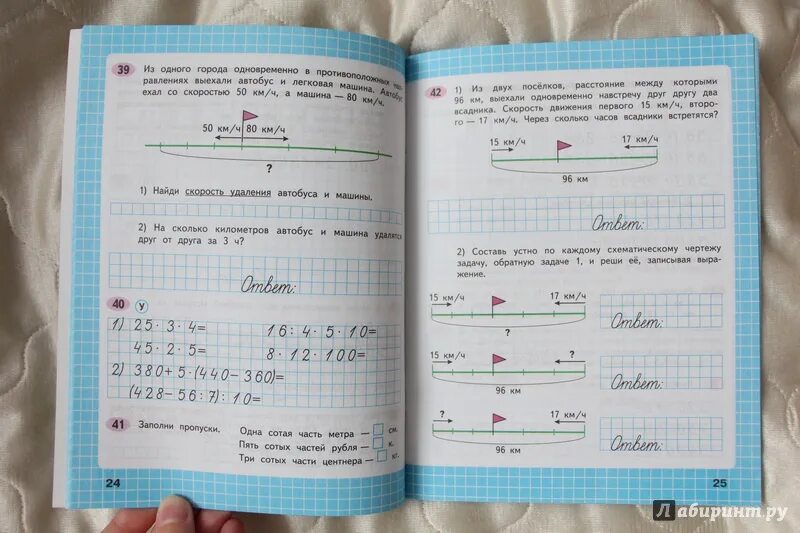 39 Из одного города одновременно в противоположных
правлениях выехали автобус и легковая машина. Автобус
ехал со скоростью 50 км/ч, а машина — 80 км/ч.
50 км/ч 80 км/ч
?
1) Найди скорость удаления автобуса и машины.
2) На сколько километров автобус и машина удалятся
друг от друга за 3 ч?
Ответ:
40 У
1) 25·3·4= 16:4·5·10=
45·2·5= 8·12·100=
2) 380+5·(440-360)=
(428-56:7):10=
41 Заполни пропуски. Одна сотая часть метра — см.
Пять сотых частей рубля — к.
Три сотых части центнера — кг.
24
42 1) Из двух посёлков, расстояние между которыми
96 км, выехали одновременно навстречу друг другу два
всадника. Скорость движения первого 15 км/ч, второ-
го — 17 км/ч. Через сколько часов всадники встретятся?
15 км/ч 17 км/ч
96 км
Ответ:
2) Составь устно по каждому схематическому чертежу
задачу, обратную задаче 1, и реши её, записывая выра-
жение.
15 км/ч 17 км/ч
?
Ответ:
15 км/ч ?
96 км
Ответ:
? 17 км/ч
96 км
Ответ:
25
Лабиринт.ру